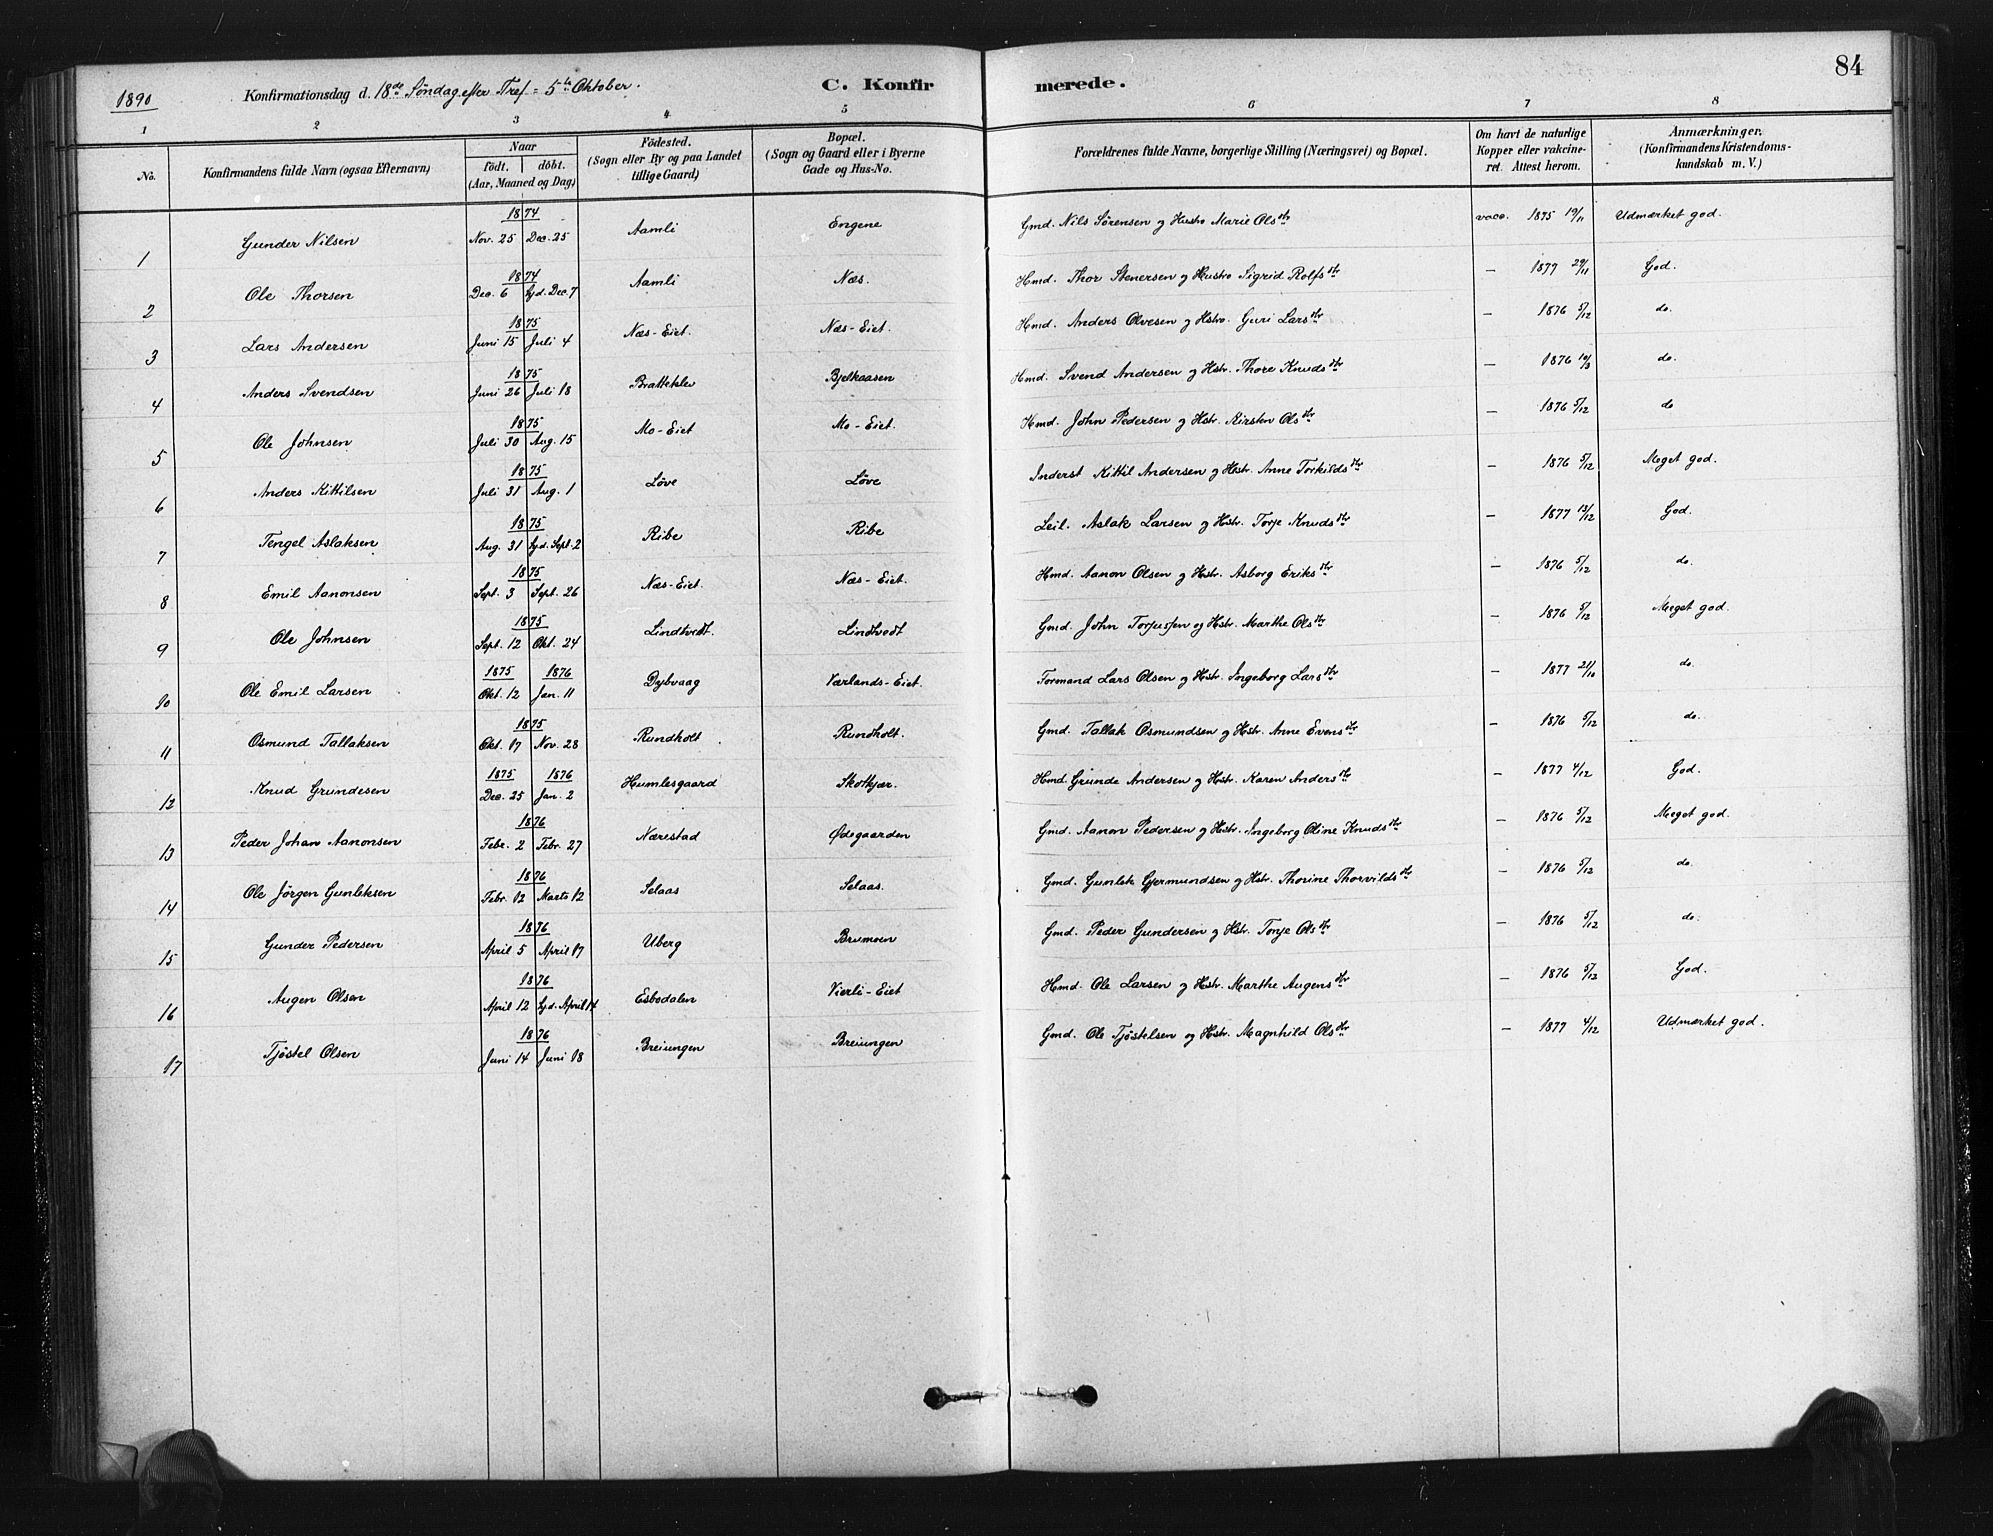 84
1890 Konfirmationsdag d. 18de Söndag efter Tref = 5te Oktober. C. Konfirmerede.
1 2 3 4 5 6 7 8
No.
Konfirmandens fulde Navn (ogsaa Efternavn)
Naar
födt. döbt.
(Aar, Maaned og Dag)
Födested.
(Sogn eller By og paa Landet
tillige Gaard)
Bopæl.
(Sogn og Gaard eller i Byerne
Gade og Hus-No.
Forældrenes fulde Navne, borgerlige Stilling (Næringsvei) og Bopæl.
Om havt de naturlige
Kopper eller vakcine-
ret. Attest herom.
Anmærkninger.
(Konfirmandens Kristendoms-
kundskab m. V.)
1 Gunder Nilsen 1874 Nov. 25 Dec. 25 Aamli Engene Gmd. Nils Sörensen og Hustro Marie Olsdtr vacc. 1875 19/11 Udmærket god.
2 Ole Thorsen 1874 Dec. 6 hjd. Dec. 7 Aamli Næs. Hmd. Thor Stenersen og Hustro Sigrid Rolfsdtr – 1877 29/11 God.
3 Lars Andersen 1875 Juni 15 Juli 4 Næs-Eiet. Næs-Eiet. Hmd. Anders Olvesen og Hstro. Guri Larsdtr – 1876 5/12 do.
4 Anders Svendsen 1875 Juni 26 Juli 18 Bratteklev Bjelkaasen Hmd. Svend Andersen og Hstr. Thore Knudsdtr – 1876 10/3 do.
5 Ole Johnsen 1875 Juli 30 Aug. 15 Mo-Eiet Mo-Eiet. Hmd. John Pedersen og Hstr. Kirsten Olsdtr – 1876 5/12 do
6 Anders Kittilsen 1875 Juli 31 Aug. 1 Löve Löve Inderst Kittil Andersen og Hstr. Anne Torkildsdtr – 1876 5/12 Meget god.
7 Tengel Aslaksen 1875 Aug. 31 hjd. Sept. 2 Ribe Ribe Leil. Aslak Larsen og Hstr. Torje Knudsdtr – 1877 13/12 God.
8 Emil Aanonsen 1875 Sept. 3 Sept. 26 Næs-Eiet. Næs-Eiet. Hmd. Aanon Olsen og Hstr. Asborg Eriksdtr – 1876 5/12 do.
9 Ole Johnsen 1875 Sept. 12 Okt. 24 Lindtvedt. Lindtvedt Gmd. John Torjussen og Hstr. Marthe Olsdtr – 1876 5/12 Meget god.
10 Ole Emil Larsen 1875 Okt. 12 1876 Jan. 11 Dybvaag Værlands-Eiet. Formand Lars Olsen og Hstr. Ingeborg Larsdtr – 1877 21/10 do.
11 Osmund Tallaksen 1875 Okt. 17 Nov. 28 Rundholt Rundholt. Gmd. Tallak Osmundsen og Hstr. Anne Evensdtr – 1876 5/12 do.
12 Knud Grundesen 1875 Dec. 25 1876 Jan. 2 Humlesgaard Skotkjær. Hmd. Grunde Andersen og Hstr. Karen Andersdtr – 1877 4/12 God.
13 Peder Johan Aanonsen 1876 Febr. 2 Febr. 27 Nærestad Ødegaarden Gmd. Aanon Pedersen og Hstr. Ingeborg Oline Knudsdtr – 1876 5/12 Meget god.
14 Ole Jörgen Gunleksen 1876 Febr. 12 Marts 12 Selaas Selaas. Gmd. Gunlek Gjermundsen og Hstr. Thorine Thorvildsdtr – 1876 5/12 do.
15 Gunder Pedersen 1876 April 5 April 17 Uberg Brumoen Gmd. Peder Gundersen og Hstr. Torje Olsdtr – 1876 5/12 do.
16 Augen Olsen 1876 April 12 hjd. April 14 Esbodalen Vierli-Eiet Hmd. Ole Larsen og Hstr. Marthe Augensdtr – 1876 5/12 God.
17 Tjöstel Olsen 1876 Juni 14 Juni 18 Breiungen Breiungen Gmd. Ole Tjöstelsen og Hstr. Magnhild Olsdtr – 1877 4/12 Udmærket god.